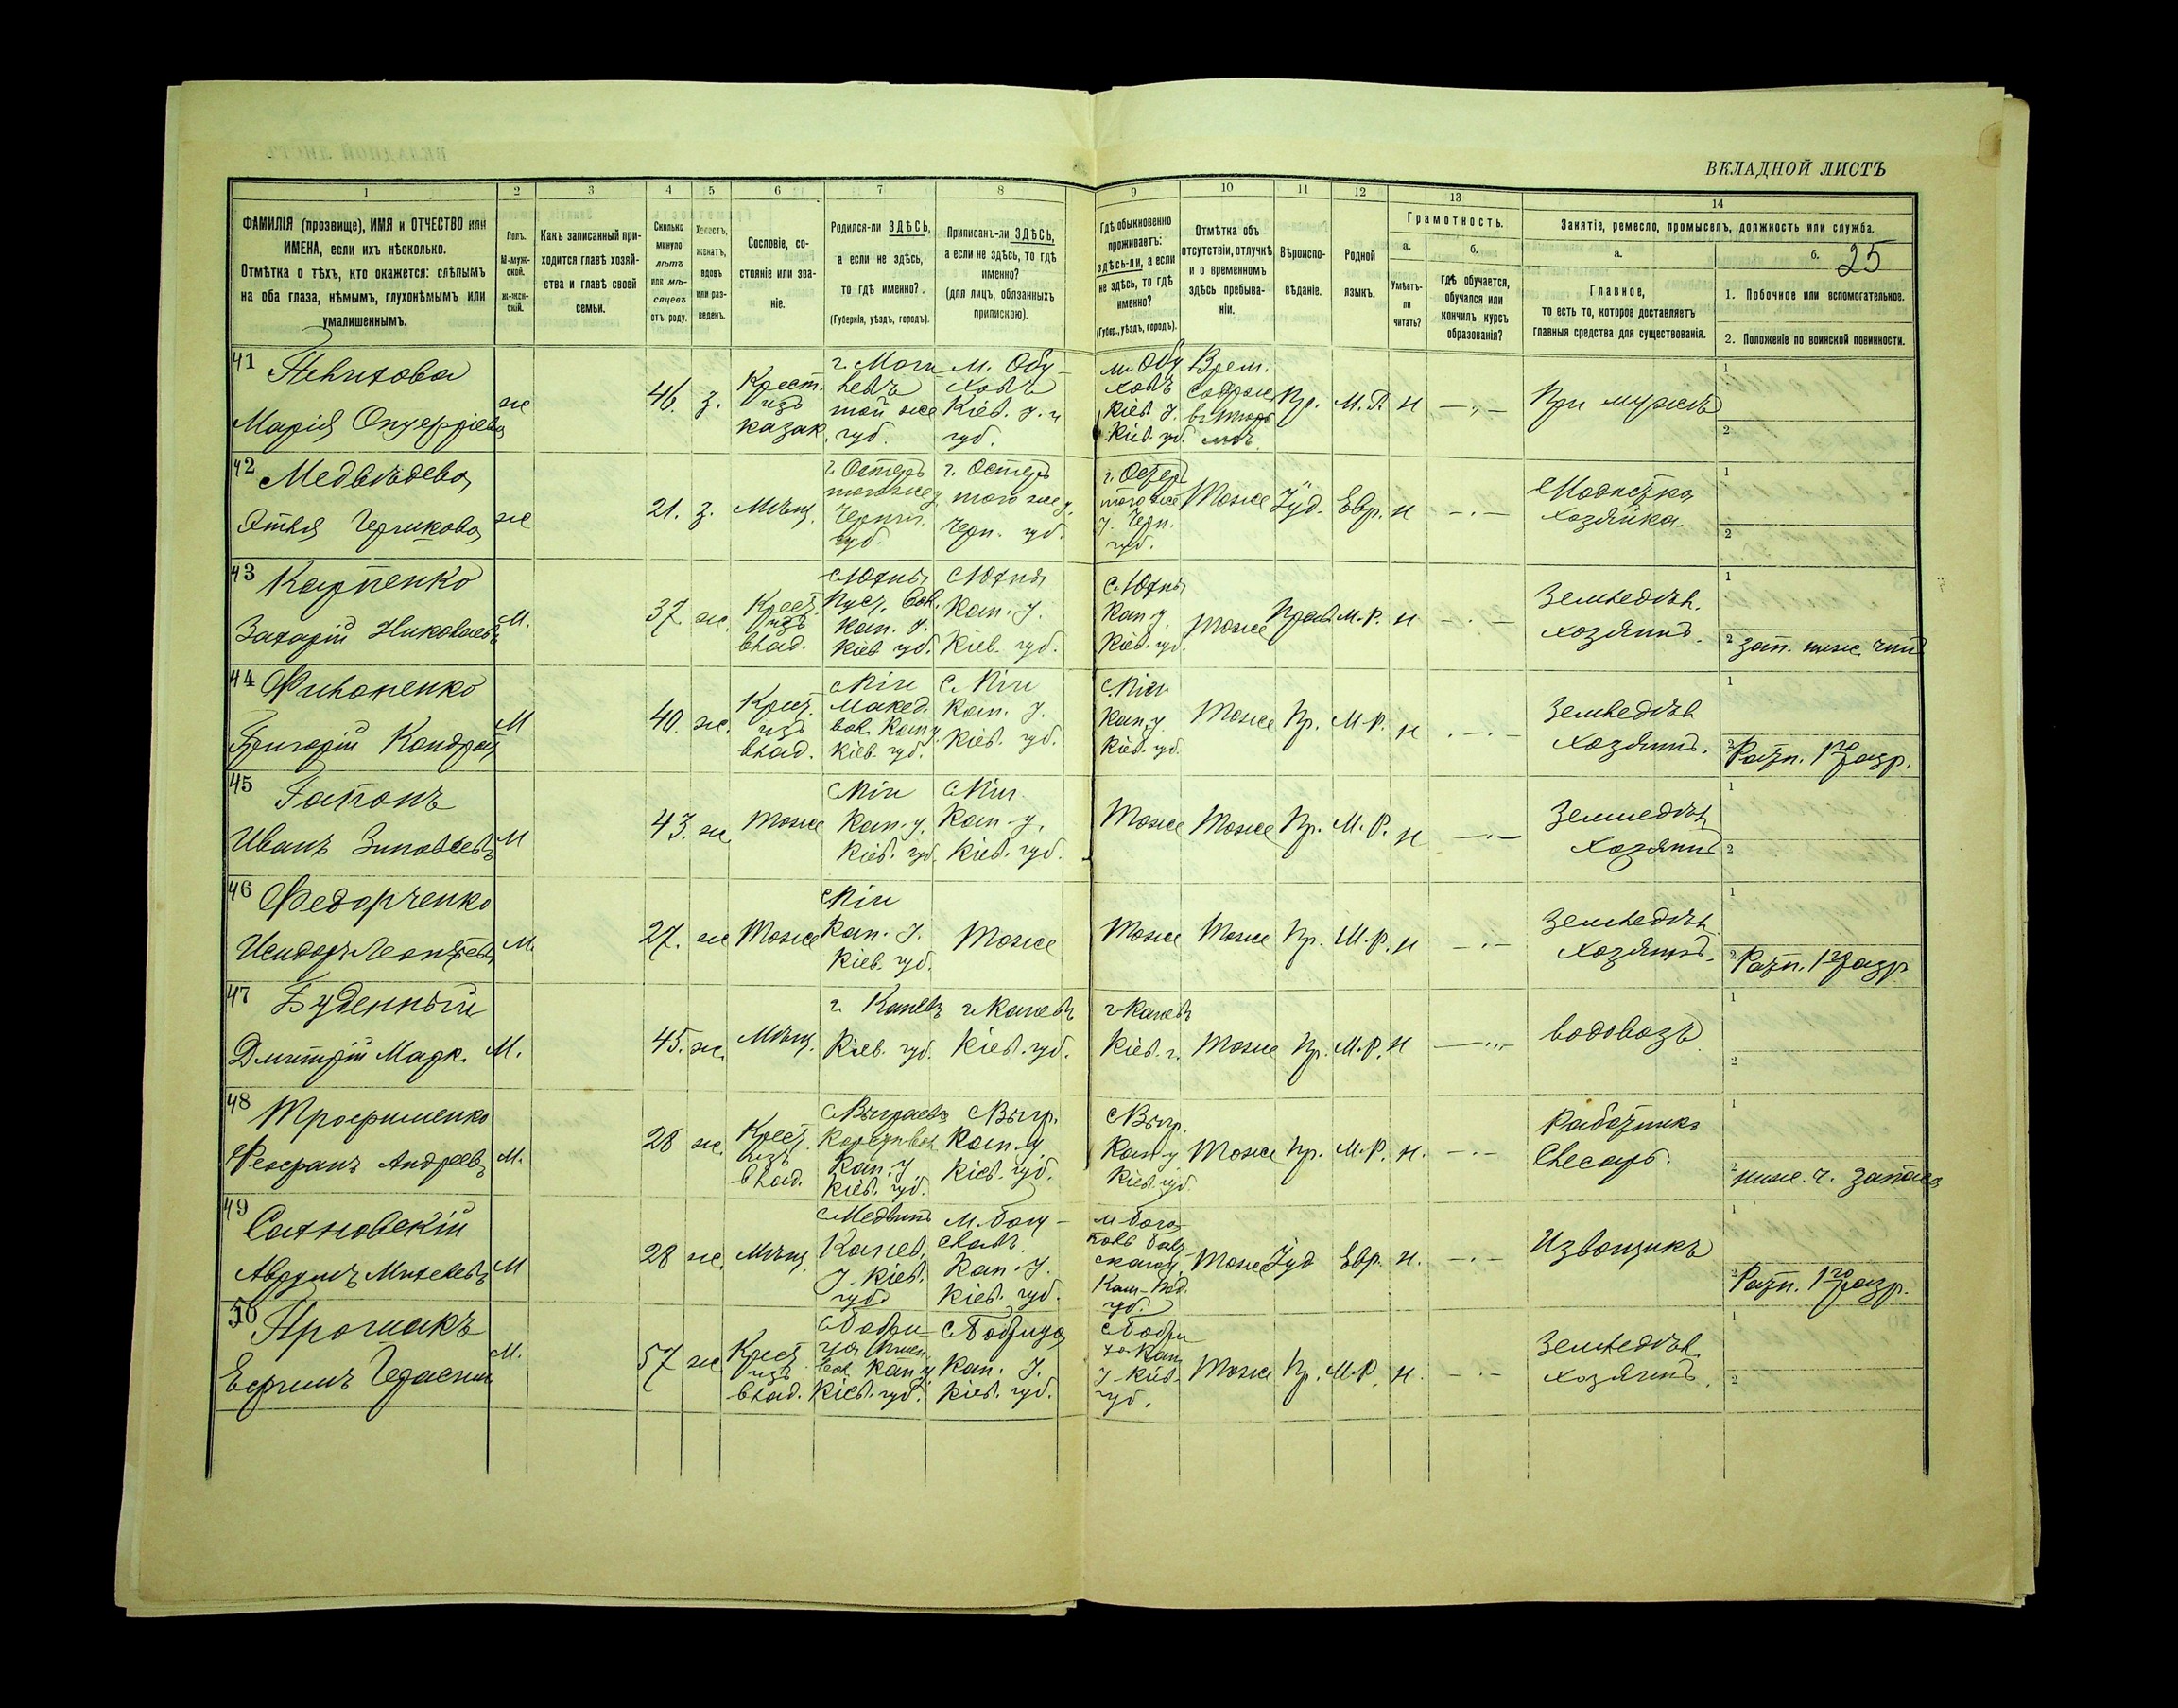 ВКЛАДНОЙ ЛИСТЪ
25
1 2 3 4 5 6 7 8 9 10 11 12 13 14
ФАМИЛІЯ (прозвище), ИМЯ и ОТЧЕСТВО или
ИМЕНА, если ихъ нѣсколько.
Отмѣтка о тѣхъ, кто окажется: слѣпымъ
на оба глаза, нѣмымъ, глухонѣмымъ или
умалишеннымъ.
Полъ.
М-муж-
ской.
ж-жен-
скій.
Какъ записанный при-
ходится главѣ хозяй-
ства и главѣ своей
семьи.
Сколько
минуло
лѣтъ
или мѣ-
сяцевъ
отъ роду.
Холостъ,
женатъ,
вдовъ
или раз-
веденъ.
Сословіе, со-
стояніе или зва-
ніе.
Родился-ли ЗДѢСЬ,
а если не здѣсь,
то гдѣ именно?
(Губернія, уѣздъ, городъ).
Приписанъ-ли ЗДѢСЬ,
а если не здѣсь, то гдѣ
именно?
(для лицъ, обязанныхъ
припискою).
Гдѣ обыкновенно
проживаетъ:
здѣсь-ли, а если
не здѣсь, то гдѣ
именно?
(Губер., уѣздъ, городъ).
Отмѣтка объ
отсутствіи, отлучкѣ
и о временномъ
здѣсь пребыва-
ніи.
Вѣроиспо-
вѣданіе.
Родной
языкъ.
Грамотность.
а.
Умѣетъ-
ли
читать?
б.
гдѣ обучается,
обучался или
кончилъ курсъ
образованія?
Занятіе, ремесло, промыселъ, должность или служба.
а.
Главное,
то есть то, которое доставляетъ
главныя средства для существованія.
б.
1. Побочное или вспомогательное.
2. Положеніе по воинской повинности.
41
Марія Онуфріева
ж
46. з.
Крест.
изъ
казак.
той же
губ.
м. Обу-
ховъ
Кіев. у. и
губ.
м. Обу
ховъ
Кіев. у.
Кіев. губ.
Врем.
Пр. М. Р. н
При мужѣ
42 Медвѣдева
ж
21. з. Мѣщ.
г. Остеръ
того же у.
Черниг.
губ.
г. Остеръ
того же у.
Черн. губ.
г. Остеръ
того же
у. Черн.
губ.
Тоже Іуд. Евр. н
Модистка
хозяйка.
43 Карпенко
Захарій Николаевъ
М.
37. ж.
Крест.
изъ
влад.
с Юхны
Кан. у.
Кіев. губ.
с Юхны
Кан. у.
Кіев. губ.
с. Юхны
Кан. у.
Кіев. губ.
Тоже Прав. М. Р. н
Земледѣл.
хозяинъ.
зап. ниж. чинъ
44 Филоненко
Григорій Кондрат.
М
40. ж.
Крест.
изъ
влад.
Кіев. губ.
Кан. у.
Кіев. губ.
Кан. у.
Кіев. губ.
Тоже Пр. М. Р. н
Земледѣл
хозяинъ.
Ратн. 1го разр.
45 Гапонъ
Иванъ Зиновьевъ
М
43. ж Тоже
Кан. у.
Кіев. губ.
Кан. у.
Кіев. губ.
Тоже Тоже Пр. М. Р. н
Земледѣл
Хозяинъ
46 Федорченко
Исидоръ Леонтьевъ
М.
27. ж Тоже
Кан. у.
Кіев. губ.
Тоже
Тоже Тоже Пр. М. Р. н
Земледѣл.
хозяинъ.
Ратн. 1го разр
47 Буденный
Дмитрій Марк.
М.
45. ж. Мѣщ.
г. Каневъ
Кіев. губ.
г. Каневъ
Кіев. губ.
г Каневъ
Кіев. г.
Тоже Пр. М. Р. н
водовозъ
48 Трофименко
Феофанъ Андреевъ
М.
28 ж.
Крест.
изъ
влад.
Кан. у
Кіев. губ.
с Выгр.
Кан. у
Кіев. губ.
с Выгр.
Кан. у
Кіев губ
Тоже Пр. М. Р. н.
Работникъ
Слесарь.
ниж. ч. запаса
49
Сахновскій
Аврумъ Михелевъ
М
28 ж. Мѣщ.
с Медвинъ
Канев.
у. Кіев.
губ.
м. Богу-
славъ.
Кан. у.
Кіев. губ.
Тоже Іуд Евр. н.
Извощикъ
Ратн. 1го разр.
50
М.
57 ж
Крест
изъ
влад.
Кан. у.
Кіев. губ.
с Бобрица
Кан. у.
Кіев. губ.
Тоже Пр. М. Р. н.
Земледѣл.
хозяинъ.